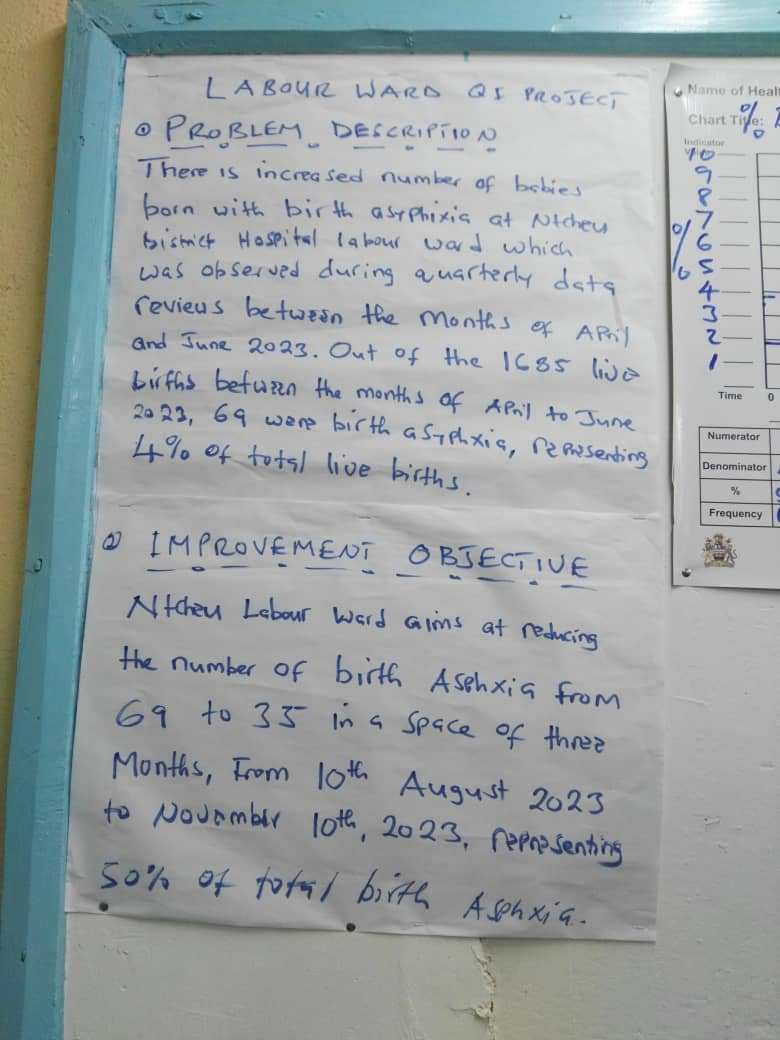 LABOUR WARD QI PROJECT
PROBLEM DESCRIPTION
There is increased number of babies
born with birth asyphixia at Ntcheu
District Hospital labour ward which
was observed during quarterly data
reviews between the months of April
and June 2023. Out of the 1685 live
births between the months of April to June
2023, 69 were birth asyphxia, representing
4% of total live births.
IMPROVEMENT OBJECTIVE
Ntcheu Labour Ward aims at reducing
the number of birth Asphxia from
69 to 35 in a space of three
Months, From 10th August 2023
to November 10th, 2023, representing
50% of total birth Asphxia.
Name of Heal
Chart Title: %
Indicator
10
9
8
7
% 6
5
4
3
2
1
Time 0
Numerator
Denominator
%
Frequency